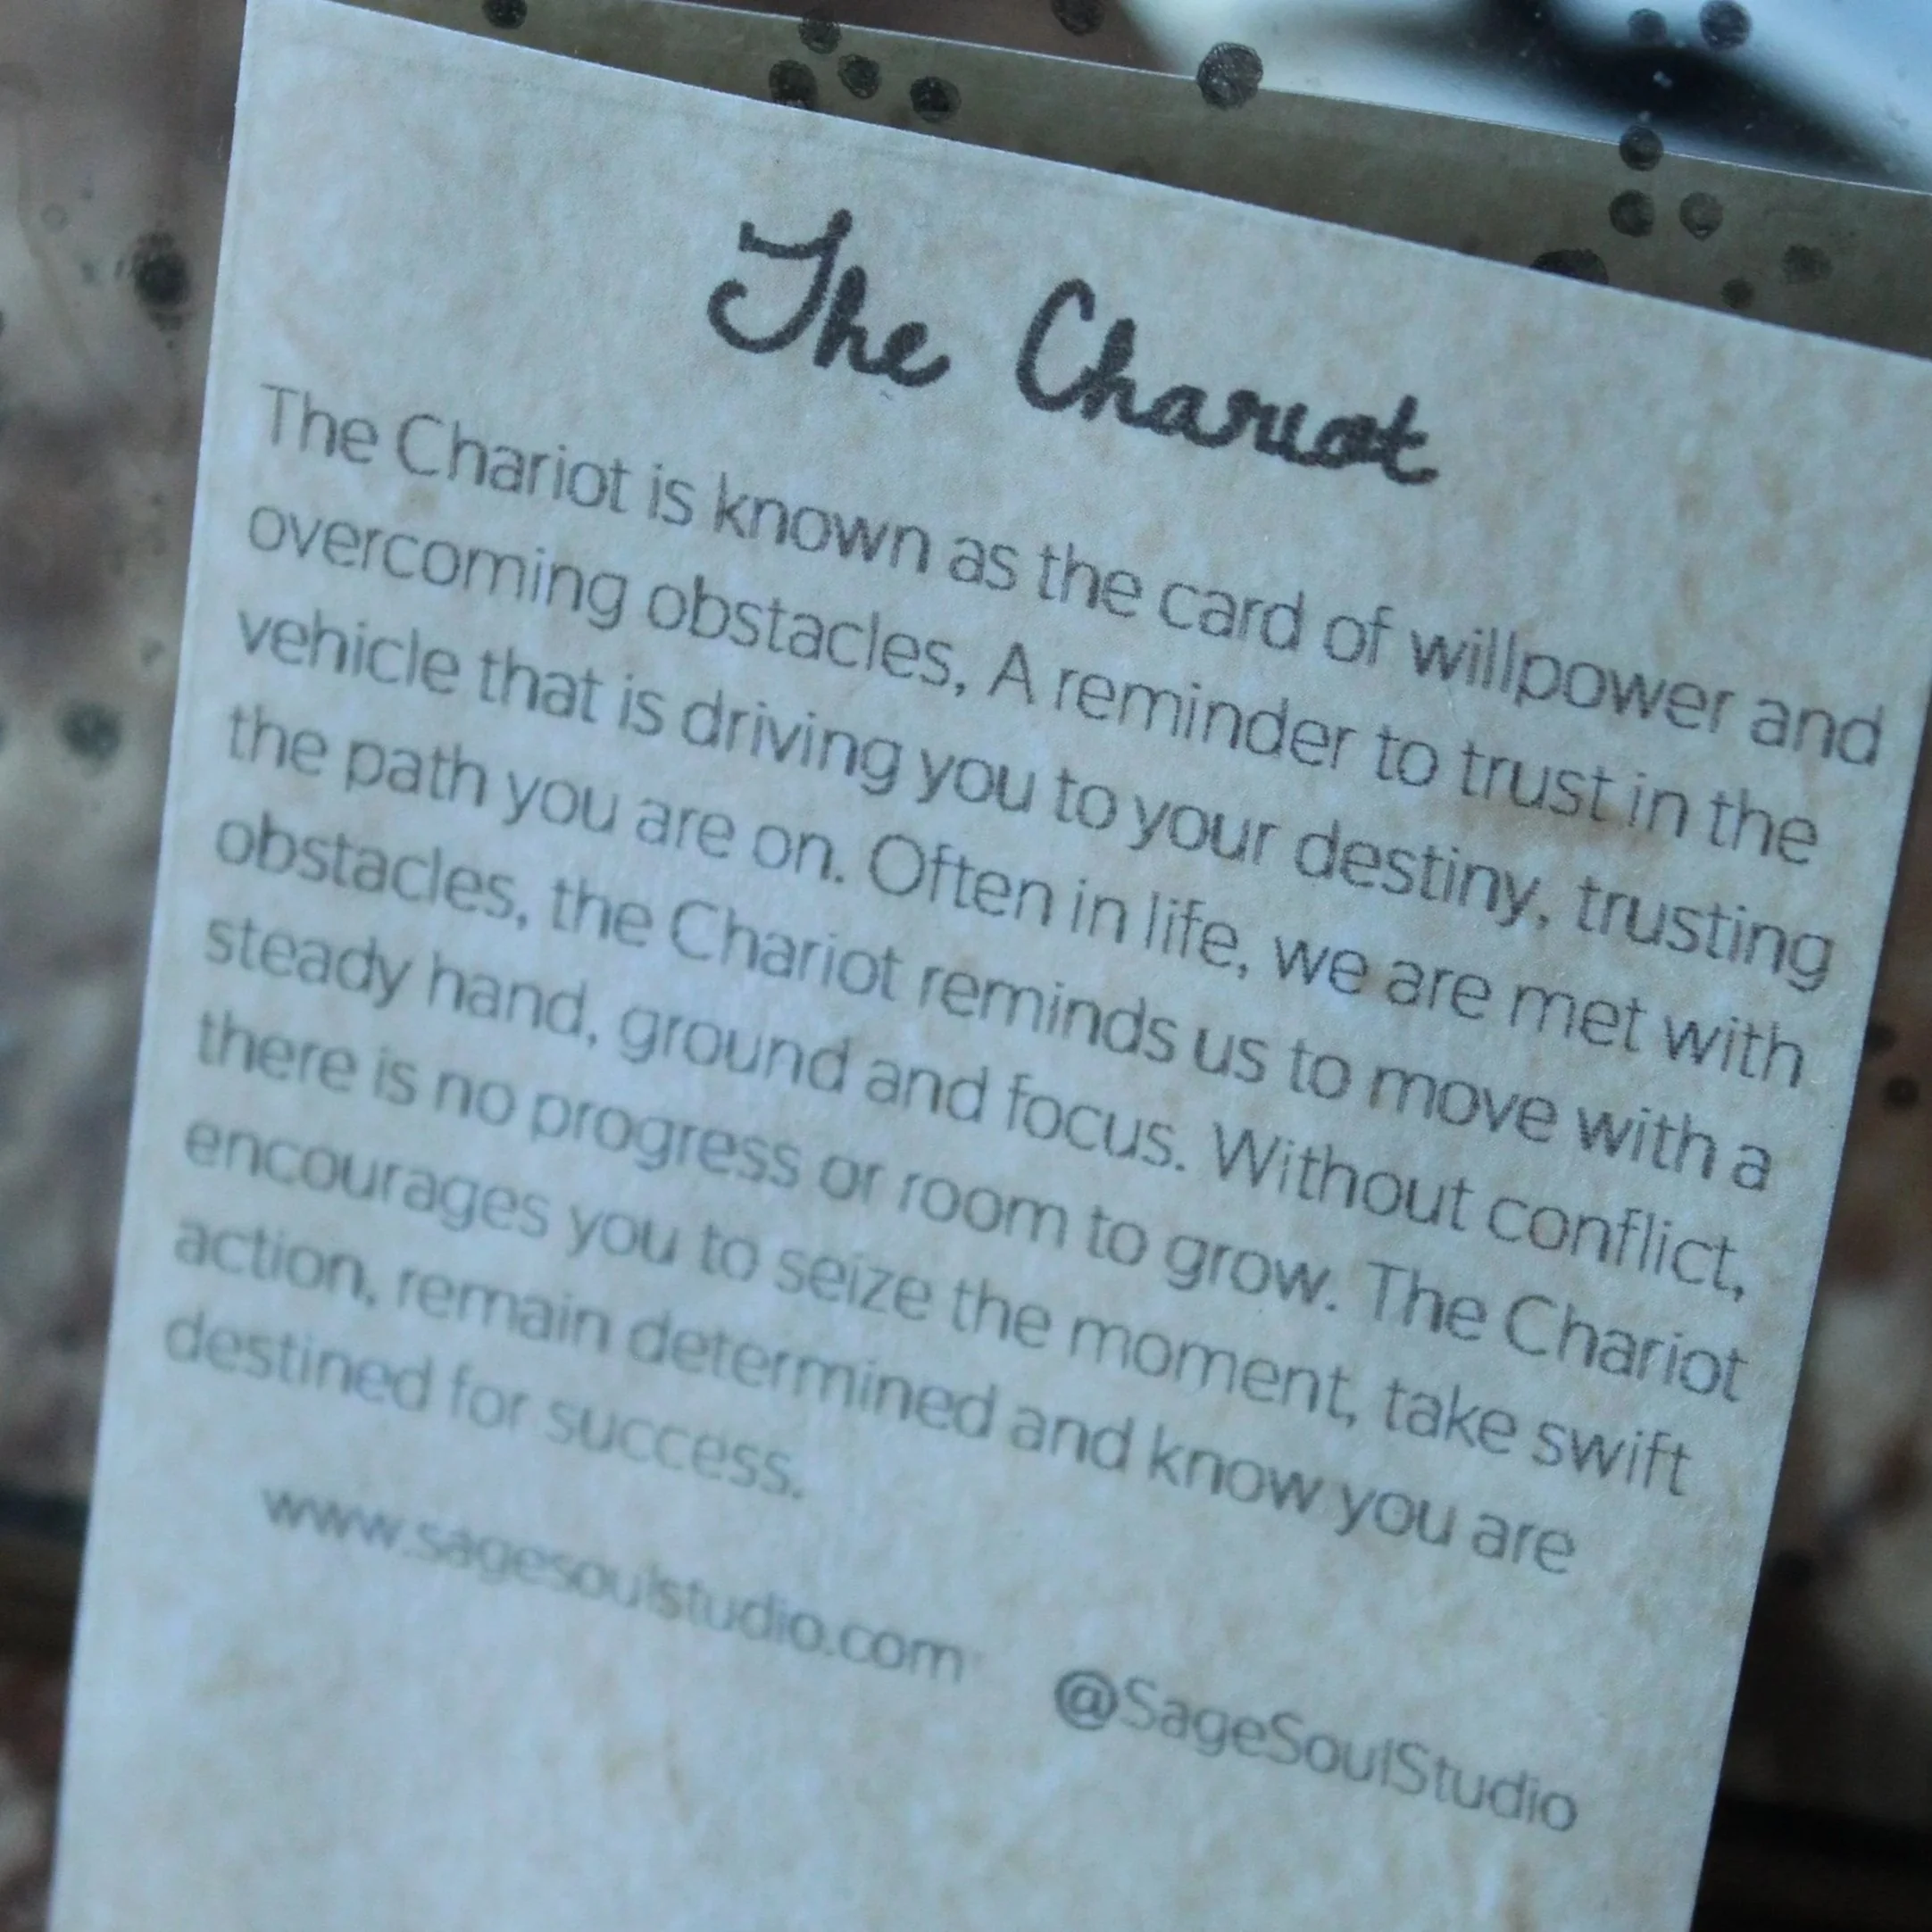 The Chariot
The Chariot is known as the card of willpower and
overcoming obstacles, A reminder to trust in the
vehicle that is driving you to your destiny, trusting
the path you are on. Often in life, we are met with
obstacles, the Chariot reminds us to move with a
steady hand, ground and focus. Without conflict,
there is no progress or room to grow. The Chariot
encourages you to seize the moment, take swift
action, remain determined and know you are
destined for success.
www.sagesoulstudio.com @SageSoulStudio